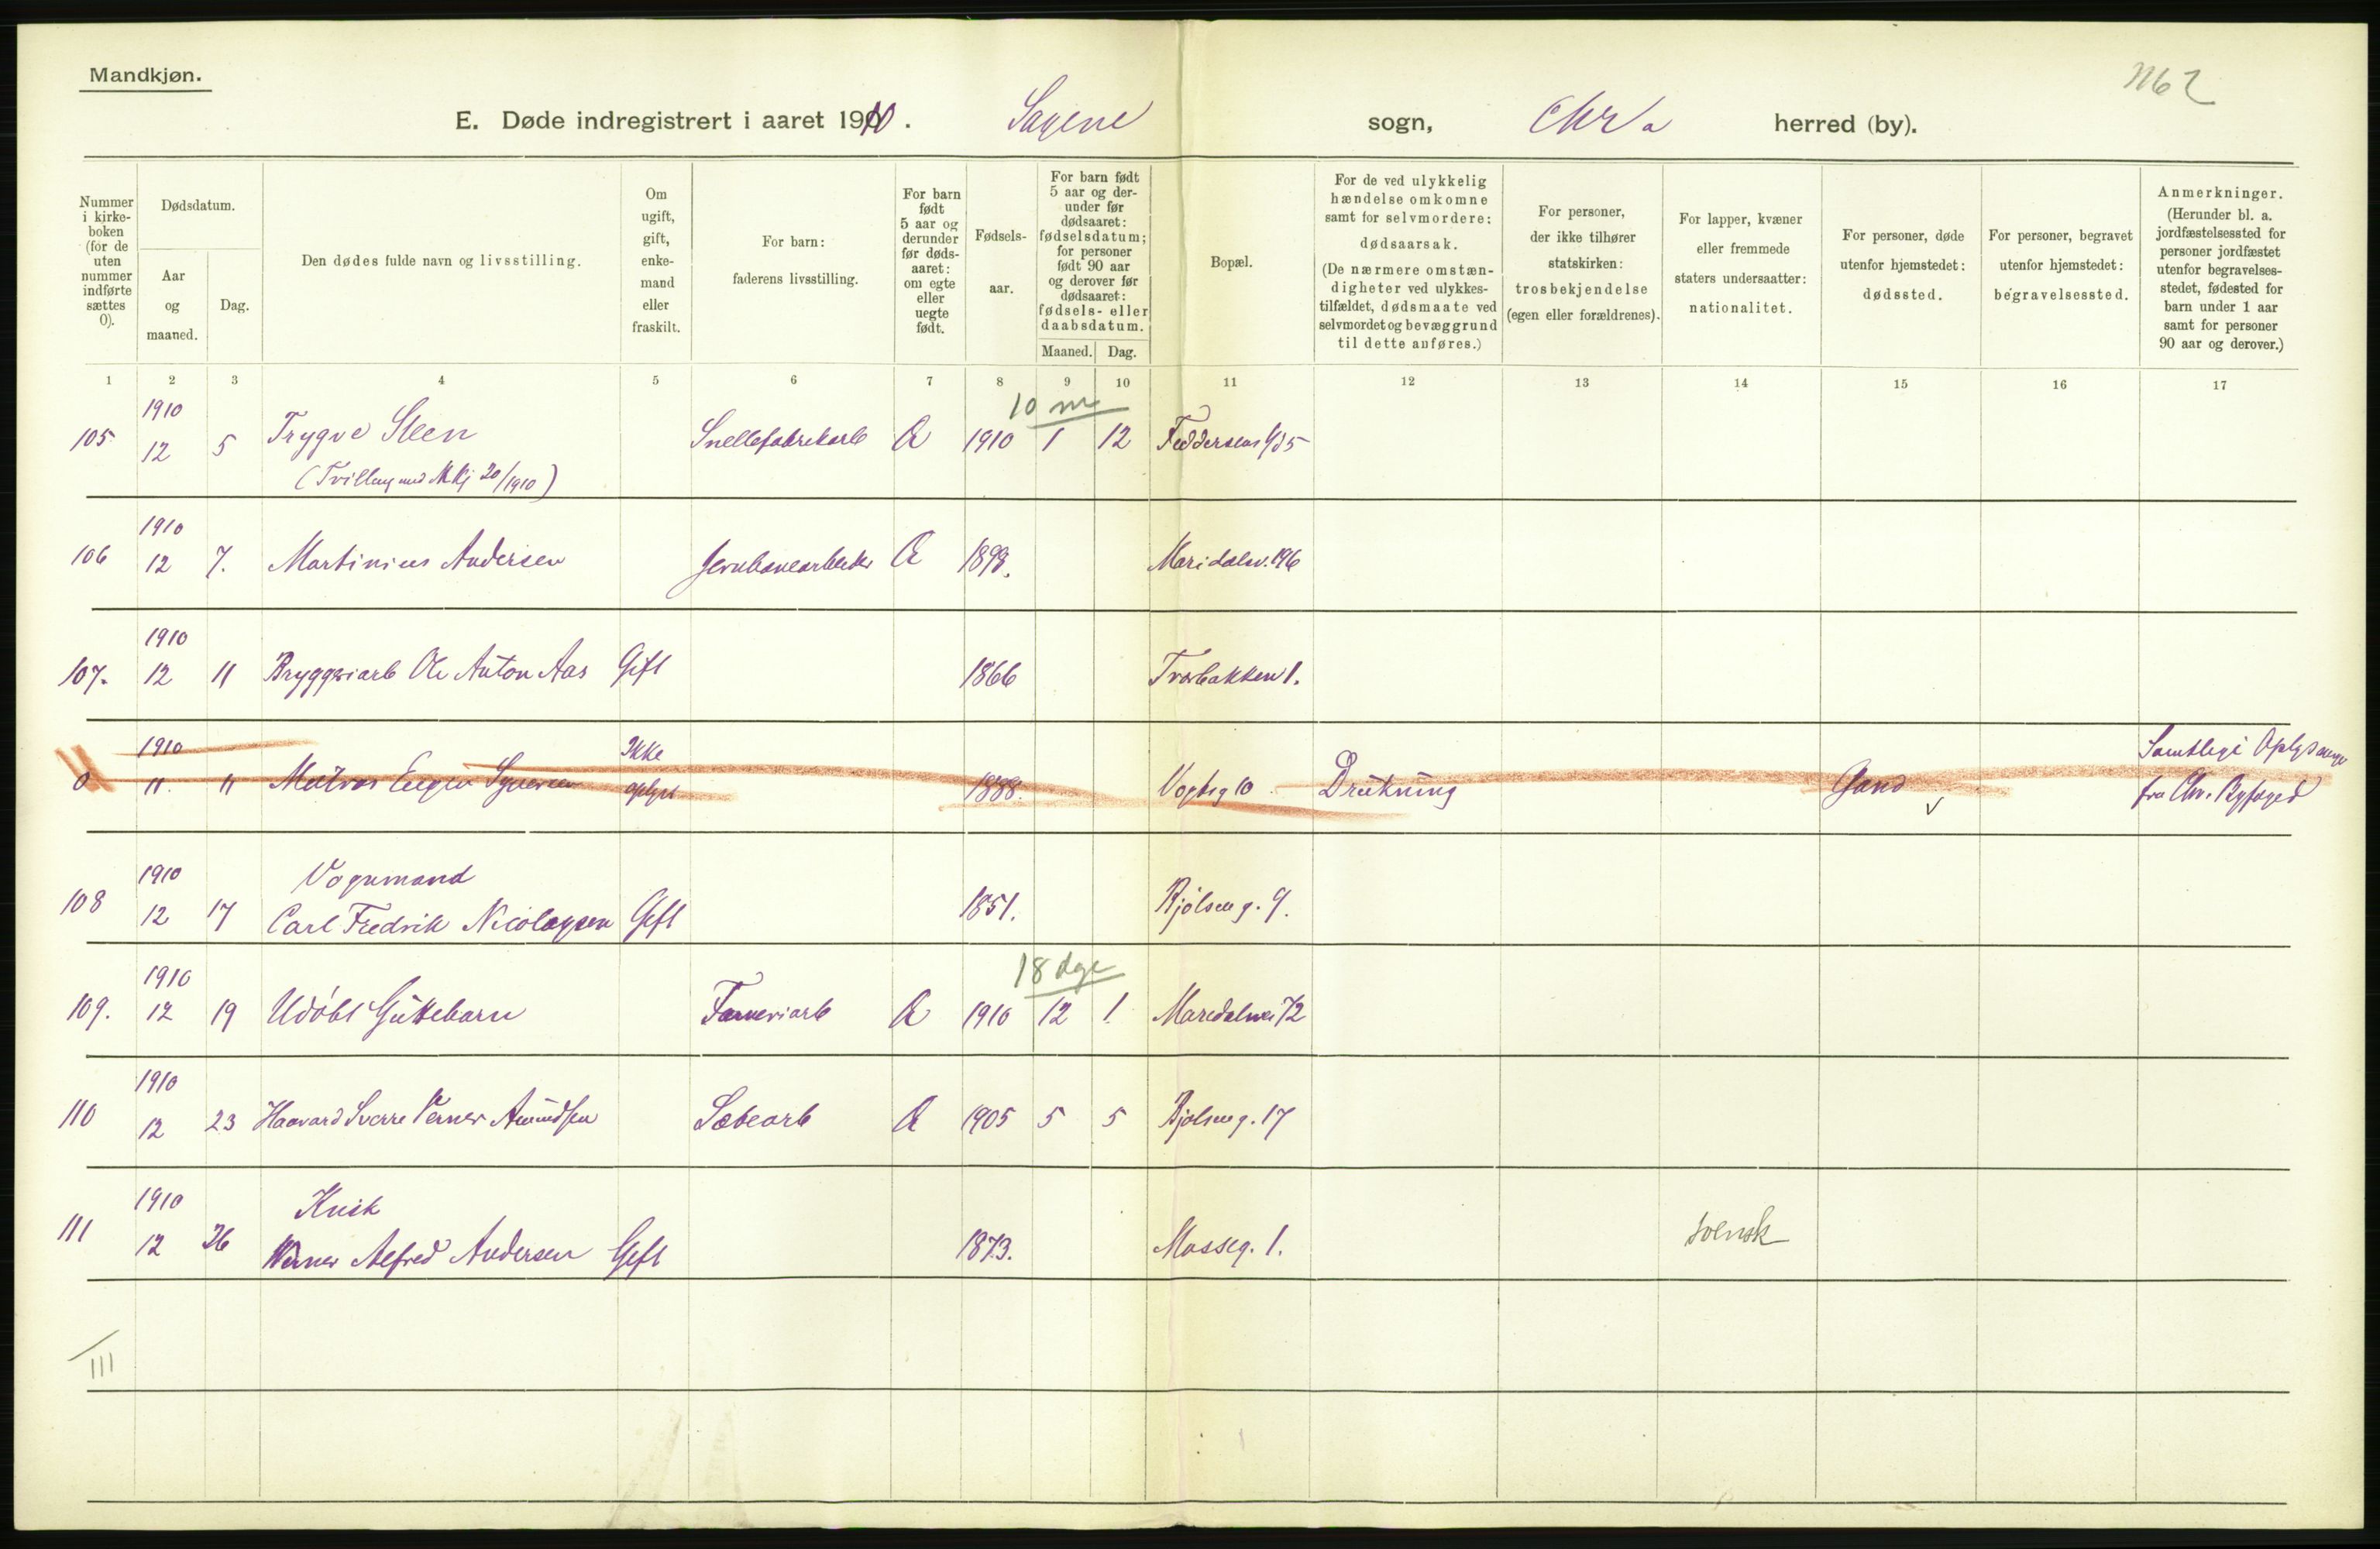 Mandkjøn.
E. Døde indregistrert i aaret 1910. Sagene sogn, Chra herred (by).
Nummer i kirkeboken (for de uten nummer indførte sættes 0).
Dødsdatum.
Aar og maaned.
Dag.
Den dødes fulde navn og livsstilling.
Om ugift, gift, enkemand eller fraskilt.
For barn: faderens livsstilling.
For barn født 5 aar og derunder før dødsaaret: om egte eller uegte født.
Fødselsaar.
For barn født 5 aar og derunder før dødsaaret: fødselsdatum; for personer født 90 aar og derover før dødsaaret: fødsels- eller daabsdatum.
Maaned. Dag.
Bopæl.
For de ved ulykkelig hændelse omkomne samt for selvmordere: dødsaarsak.
(De nærmere omstændigheter ved ulykkestilfældet, dødsmaate ved selvmordet og bevæggrund til dette anføres.)
For personer, der ikke tilhører statskirken: trosbekjendelse (egen eller forældrenes).
For lapper, kvæner eller fremmede staters undersaatter: nationalitet.
For personer, døde utenfor hjemstedet: dødssted.
For personer, begravet utenfor hjemstedet: begravelsessted.
Anmerkninger.
(Herunder bl. a. jordfæstelsessted for personer jordfæstet utenfor begravelsesstedet, fødested for barn under 1 aar samt for personer 90 aar og derover.)
1 2 3 4 5 6 7 8 9 10 11 12 13 14 15 16 17
1910 10 m
105 12 5 Trygve Steen Snellefabrikarb Æ 1910 1 12 Feddersens g 5
(Tvilling med M Kj 20/1910)
1910
106 12 7. Martinius Andersen Jernbanearbeider Æ 1899. Maridalsv. 196
1910
107. 12 11 Bryggeriarb Ole Anton Aas Gift 1866 Tværbakken 1.
1910 Ikke Samtlige Oplysninger
0 11 11 Matros Eugen Syversen oplyst 1888 Vogtsg 10 Drukning Gand fra Chr. Byfoged
1910 Vognmand
108 12 17 Carl Fredrik Nicolaysen Gift 1851. Bjølseng. 9.
1910 18 dge
109. 12 19 Udøbt Guttebarn Farveriarb Æ 1910 12 1. Maridalsvei 72
1910
110 12 23 Haavard Sverre Verner Amundsen Sæbearb Æ 1905 5 5 Bjølseng. 17
1910 Kusk
111 12 26 Werner Alfred Andersen Gift 1873. Mosseg. 1. svensk
111